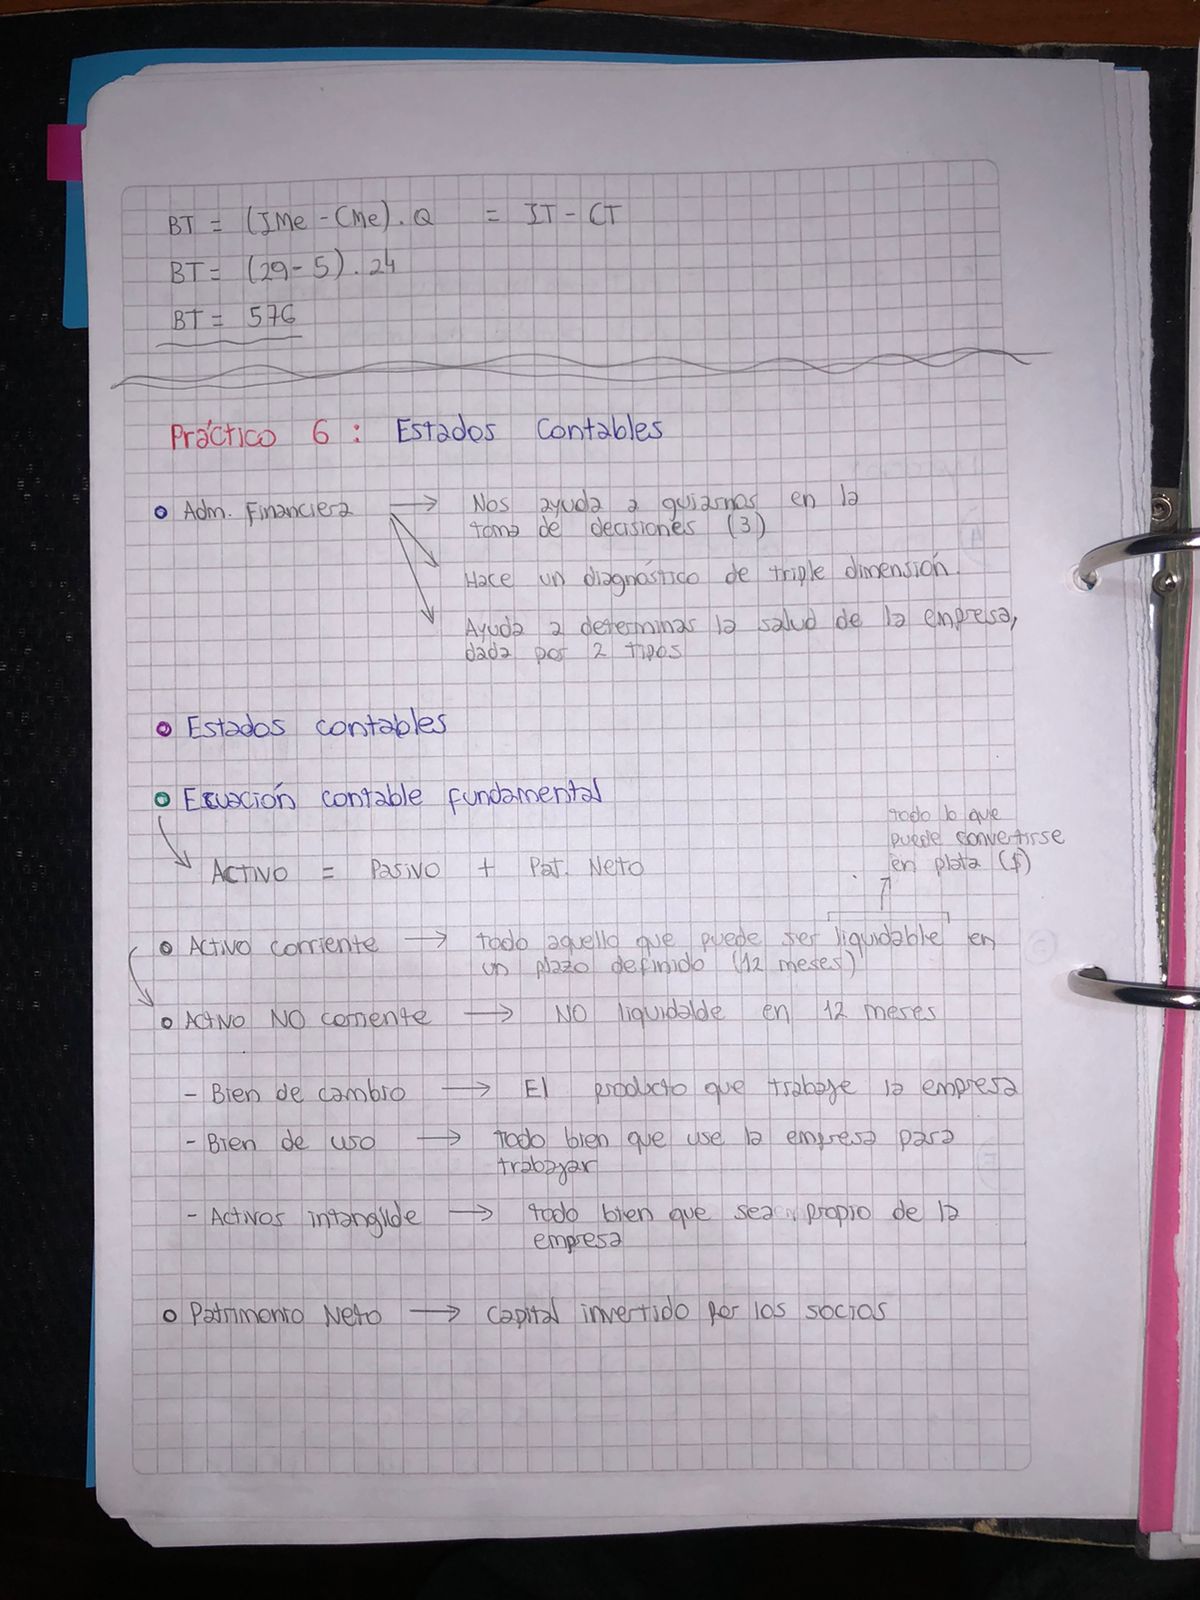 BT = (IMe - CMe) . Q = IT - CT
BT = (29 - 5) . 24
BT = 576
Práctico 6 : Estados Contables
Adm. Financiera → Nos ayuda a guiarnos en la
toma de decisiones (3)
Hace un diagnóstico de triple dimensión.
Ayuda a determinar la salud de la empresa,
dada por 2 tipos
Estados contables
Ecuación contable fundamental
Activo = Pasivo + Pat. Neto
todo lo que
puede convertirse
en plata ($)
Activo corriente → todo aquello que puede ser liquidable en
un plazo definido (12 meses)
Activo NO corriente → NO liquidable en 12 meses
- Bien de cambio → El producto que trabaje la empresa
- Bien de uso → todo bien que use la empresa para
trabajar
- Activos intangible → todo bien que sea propio de la
empresa
Patrimonio Neto → Capital invertido por los socios